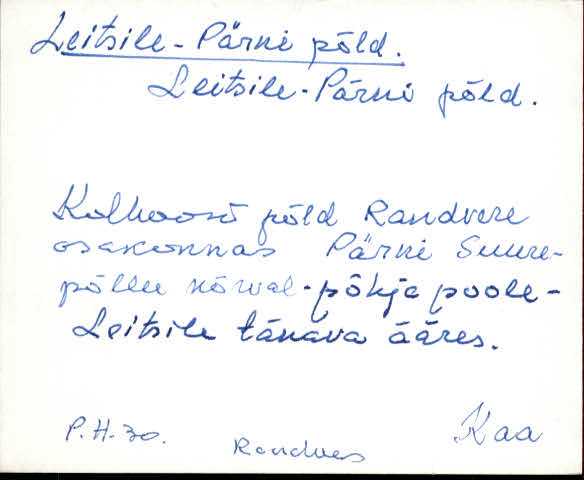 Leitsile-Pärni põld.
Leitsile-Pärni põld.
Kolhoosi põld Randvere
osakonnas Pärni Suure-
põllu kõrval-põhja poole-
Leitsile tänava ääres.
P.H-30. Kaa
Randvere